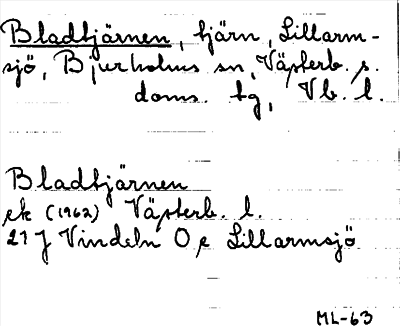 Bladtjärnen, tjärn, Lillarm-
sjö, Bjurholms sn, Västerb. s.
doms. tg, Vb. l.
Bladtjärnen
ek (1962) Västerb. l.
21 J Vindeln O, e Lillarmsjö
ML-63